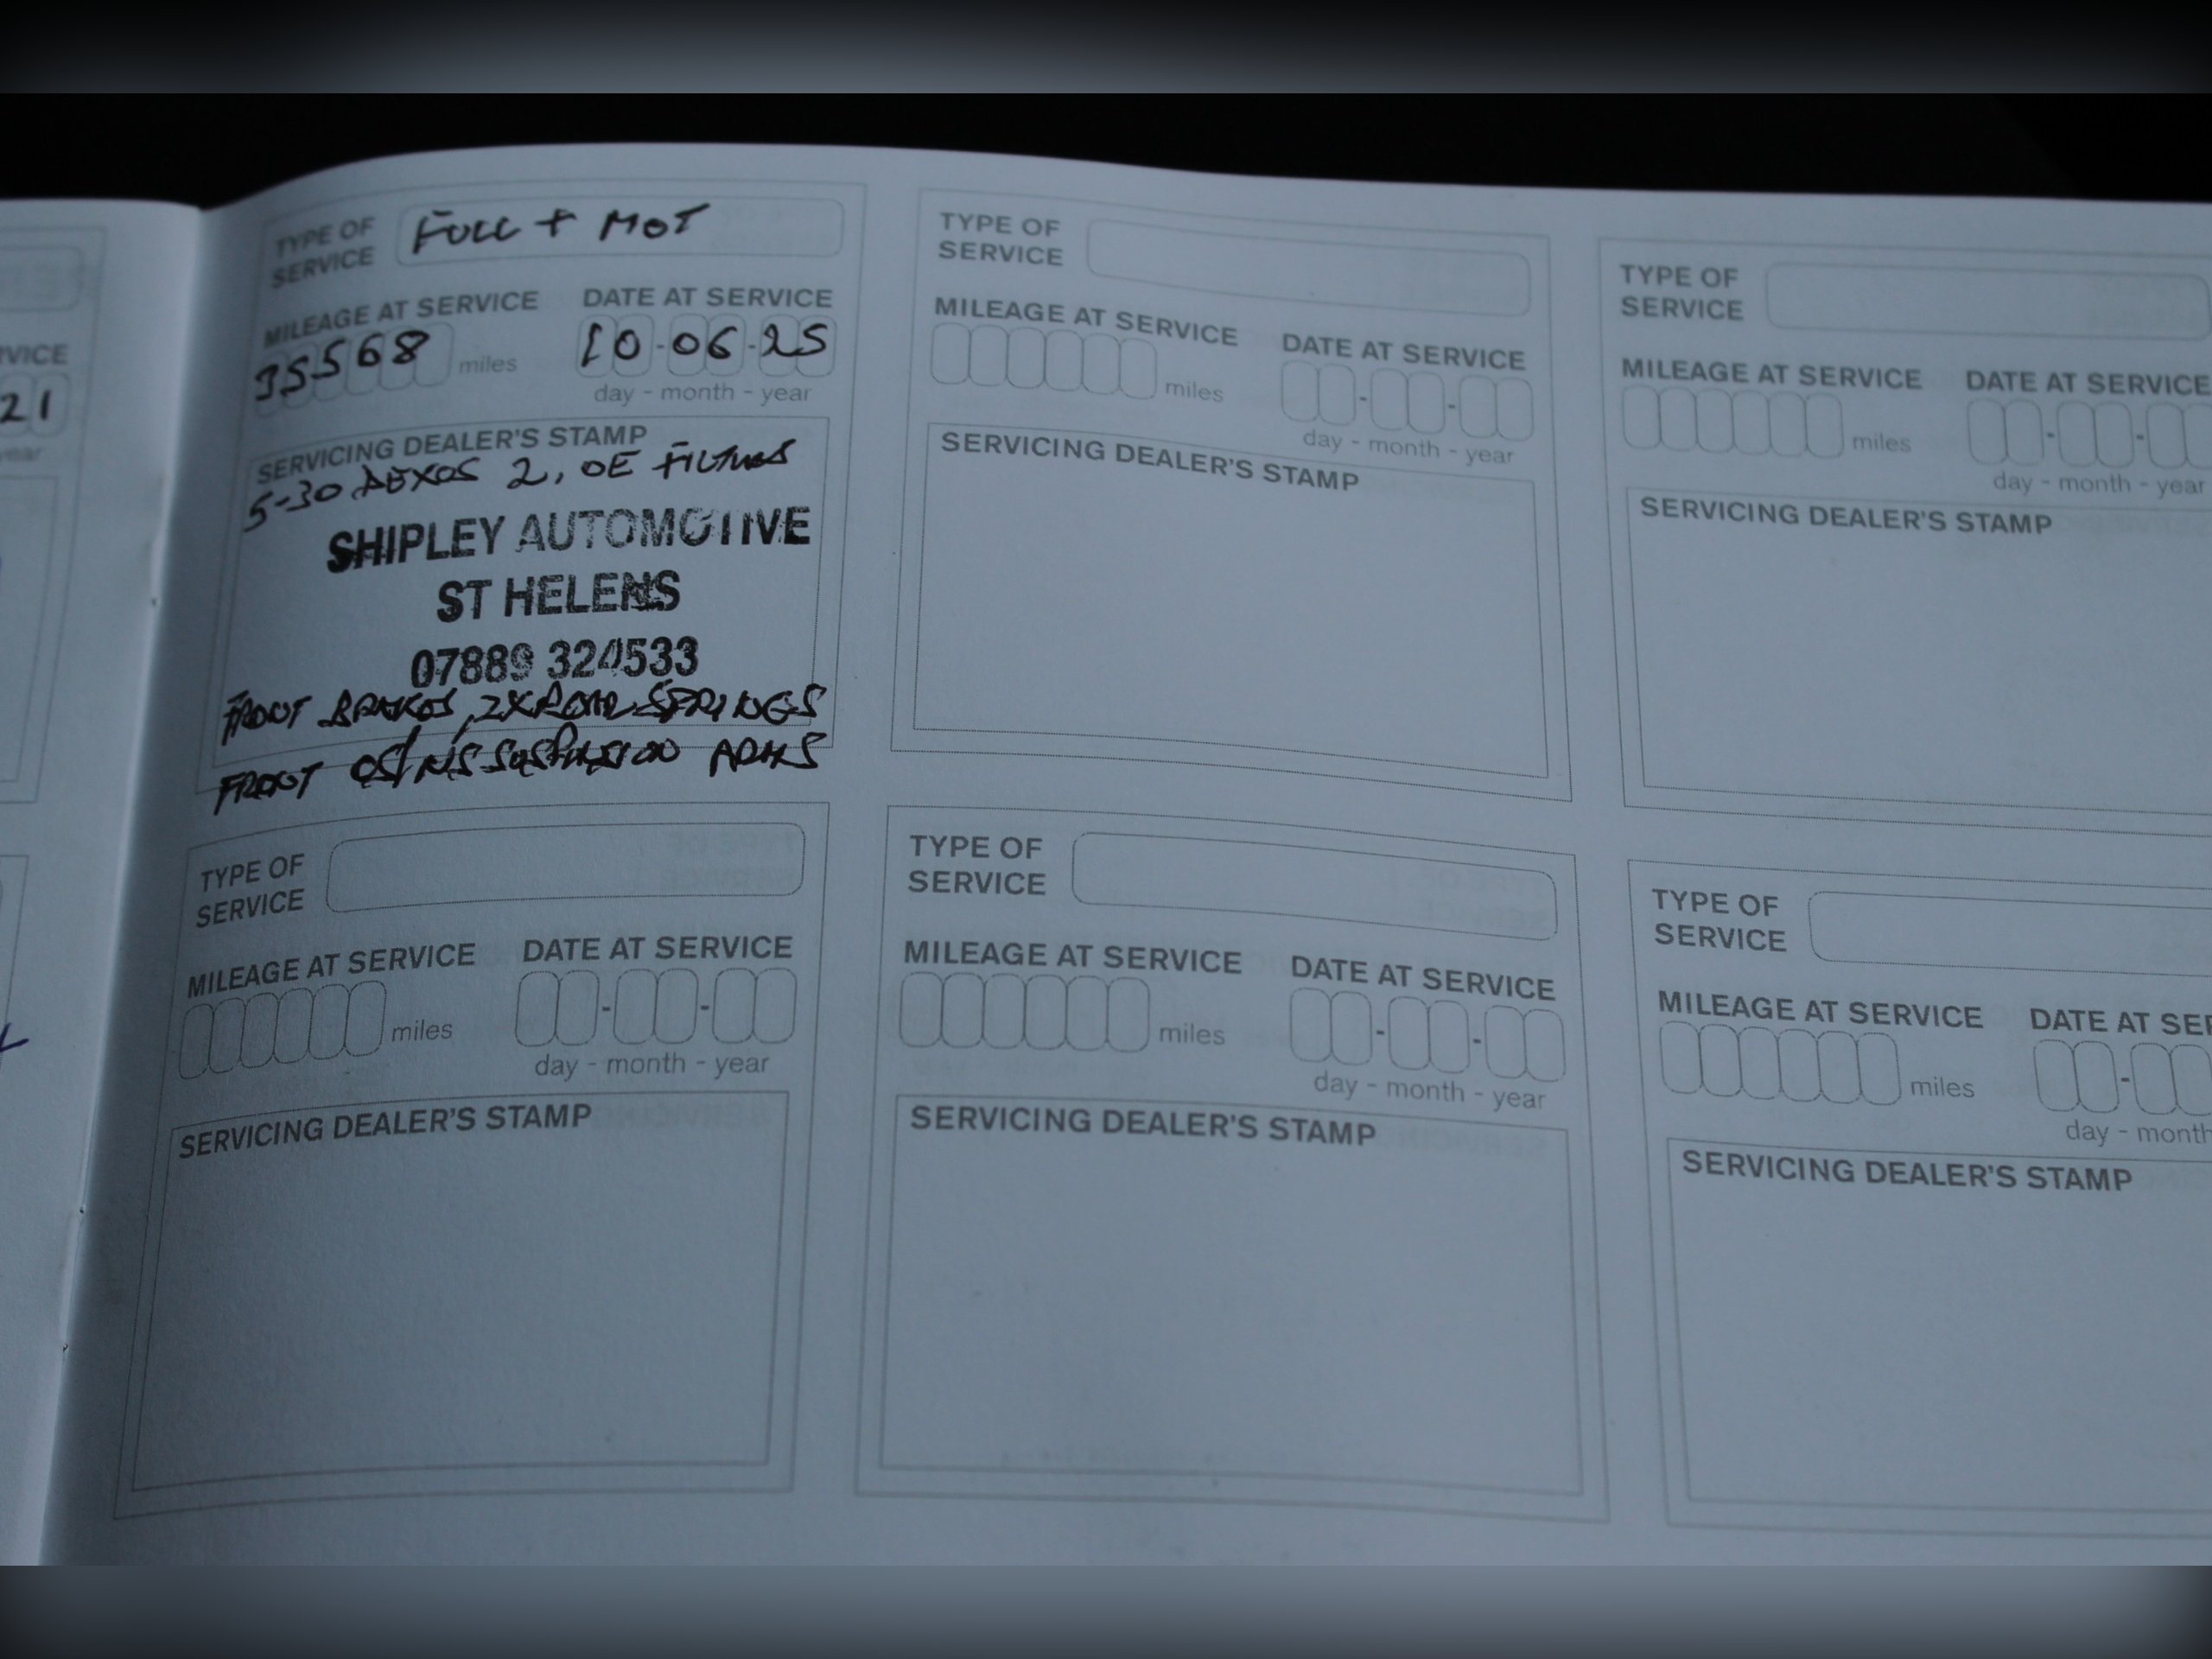 RVICE
21
year
TYPE OF
SERVICE
FULL + MOT
MILEAGE AT SERVICE
35568 miles
DATE AT SERVICE
10-06-25
day - month - year
SERVICING DEALER'S STAMP
5-30 DEXOS 2, OE FILTERS
SHIPLEY AUTOMOTIVE
ST HELENS
07889 324533
FRONT BRAKES, 2X REAR SPRINGS
FRONT OS/NS SUSPENSION ARMS
TYPE OF
SERVICE
MILEAGE AT SERVICE
miles
DATE AT SERVICE
day - month - year
SERVICING DEALER'S STAMP
TYPE OF
SERVICE
MILEAGE AT SERVICE
miles
DATE AT SERVICE
day - month - year
SERVICING DEALER'S STAMP
TYPE OF
SERVICE
MILEAGE AT SERVICE
miles
DATE AT SERVICE
day - month - year
SERVICING DEALER'S STAMP
TYPE OF
SERVICE
MILEAGE AT SERVICE
miles
DATE AT SERVICE
day - month - year
SERVICING DEALER'S STAMP
TYPE OF
SERVICE
MILEAGE AT SERVICE
miles
DATE AT SER
day - month
SERVICING DEALER'S STAMP